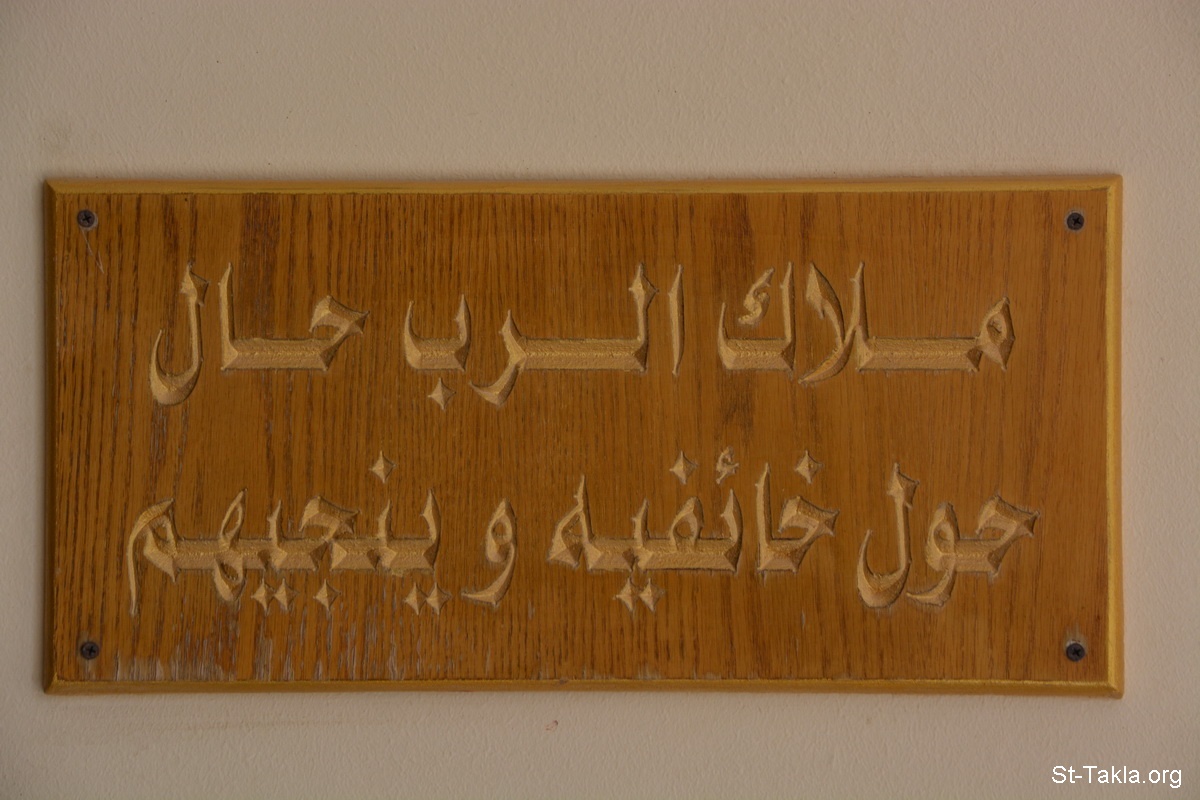 ملاك الرب حال
حول خائفيه و ينجيهم
St-Takla.org